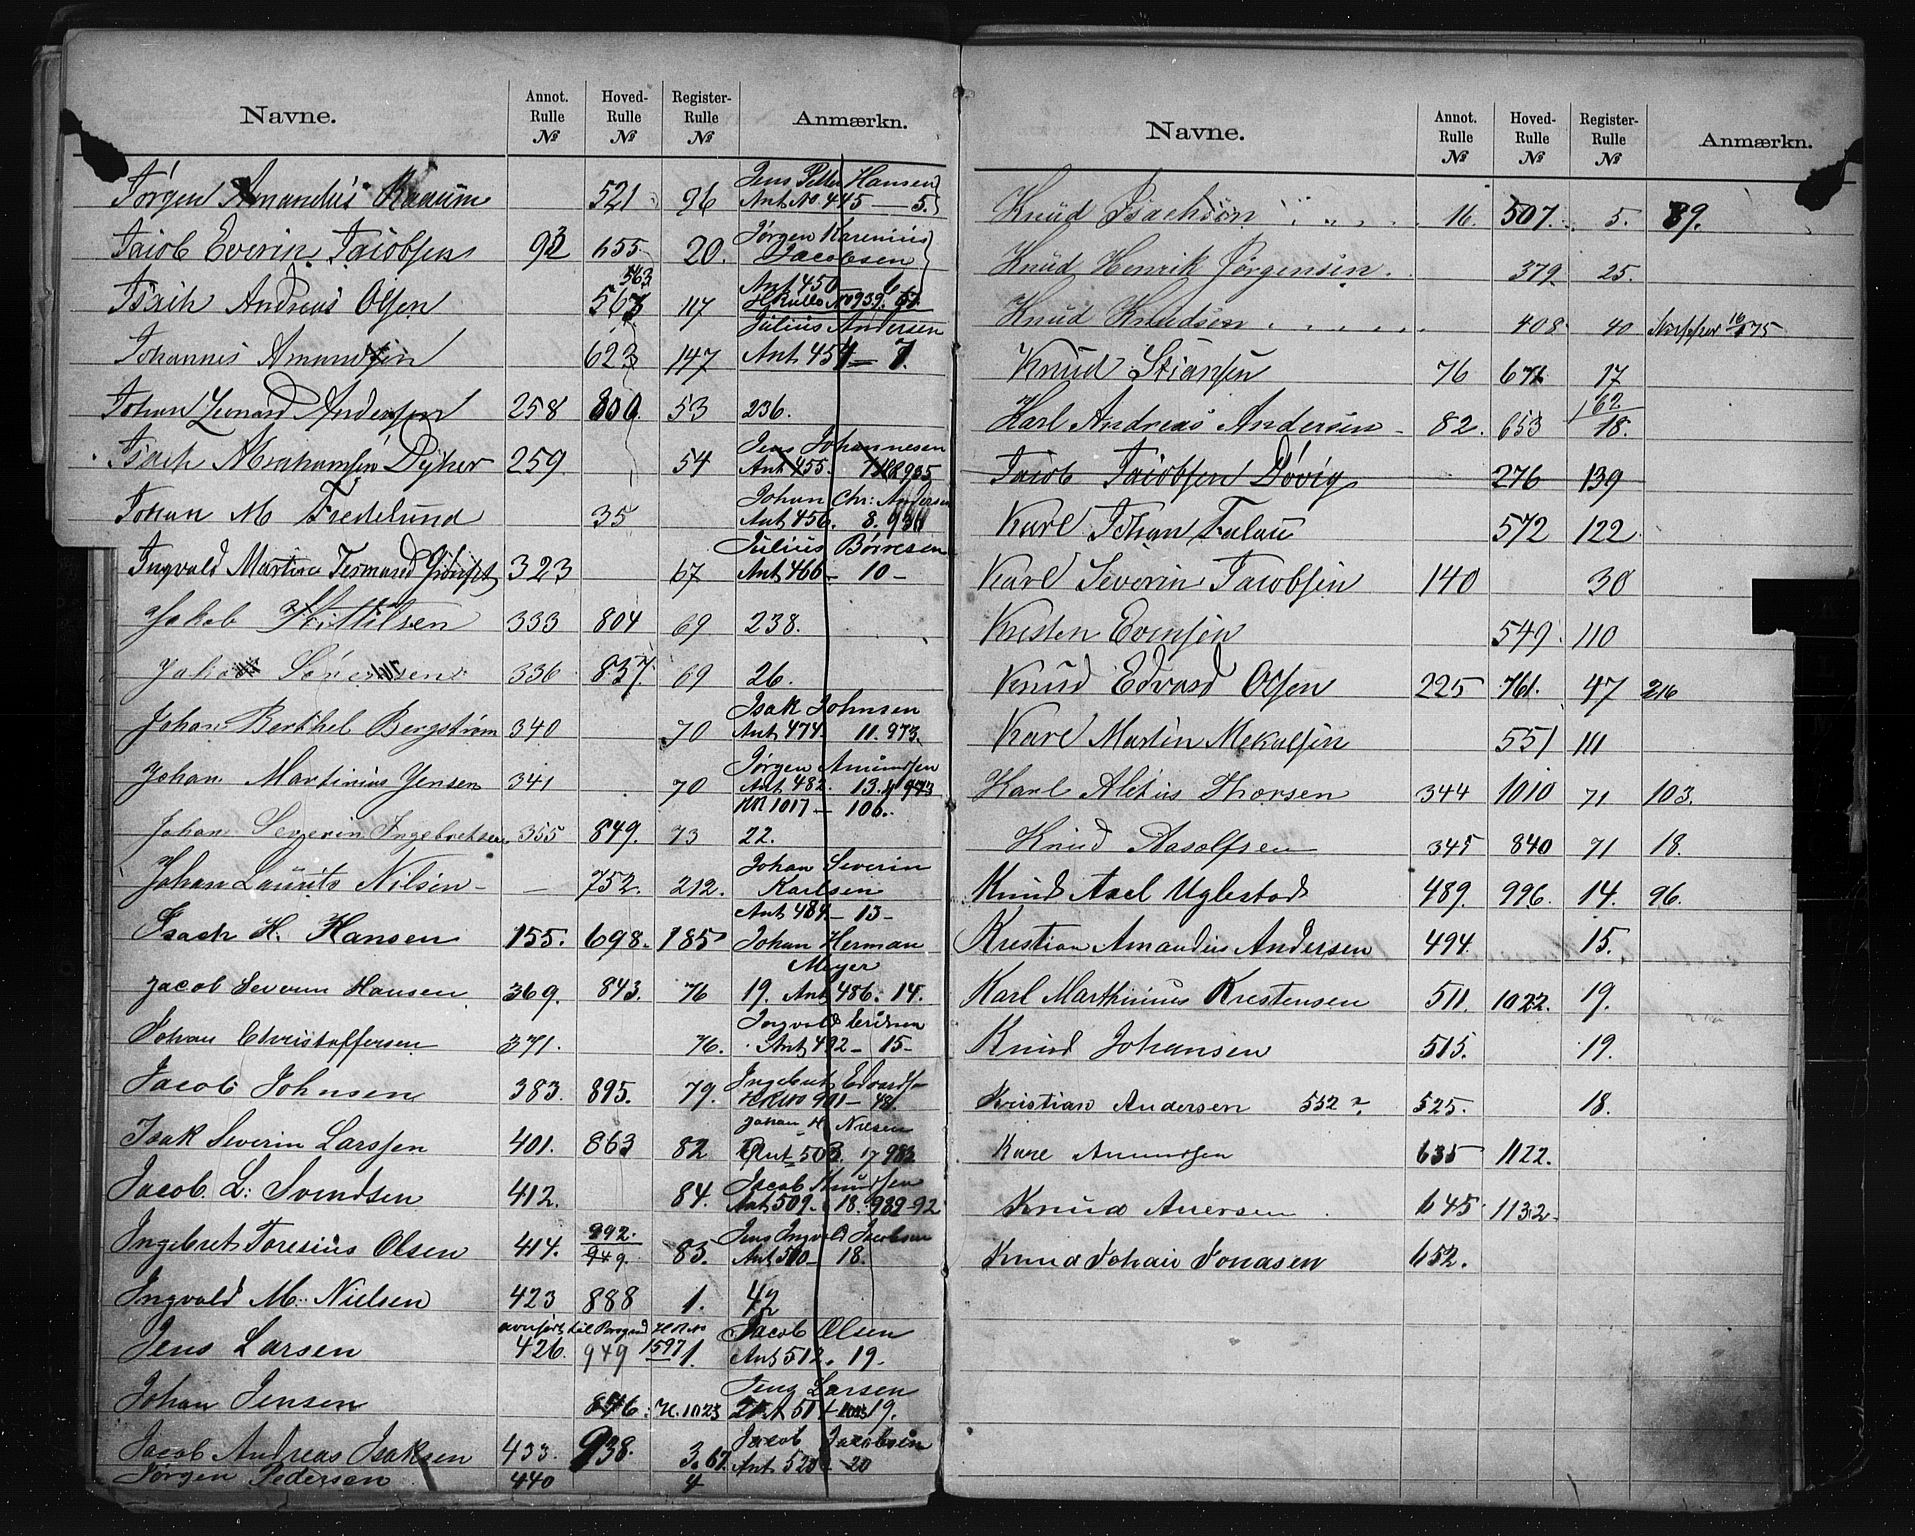 Navne. Annot. Rulle № Hoved- Rulle № Register- Rulle № Anmærkn.
Jørgen Amandus Raaum 521 96 Jens Petter Hansen Ant No 445 — 5.
Jacob Everin Jacobsen 93 655 20. Jørgen Karenius Jacobsen
Isach Andreas Olsen 563 567 117 Ant 450 6 H Rulle No 939. 61
Johannis Amundsen 623 147 Julius Andersen Ant 454 — 7.
Johan Lenard Andersen 258 800. 53 236.
Isach Abrahamsen Dejker 259 54 Jens Johannesen Ant 455 7 188 935
Johan M Fredelund 35 Johan Chr: Andersen Ant 456. 8. 931
Ingvald Martin 323 67 Julius Børresen Ant 466 — 10 —
Jakob Kittilsen 333 804 69 238.
Jakob Sørensen 336 837 69 26.
Johan Berthel Bergstrøm 340 70 Isak Johnsen Ant 474 11. 973.
Johan Martinius Jensen 341 70 Jørgen Amundsen Ant 482. 13. 973 HR 1017 — 106.
Johan Severin Ingebretsen 355 849. 73 22.
Johan Laurits Nilsen — — 752. 212. Johan Severin Karlsen Ant 484 — 13 —
Isach H. Hansen 155. 698. 185 Johan Herman Meyer
Jacob Severin Hansen 369. 843. 76 19. Ant 486. 14.
Johan Christoffersen 371. 76. Ingvald Eriksen Ant 492 — 15 —
Jacob Johnsen 383. 895. 79. Ingebret Edvards HR No 901 — 48.
Isak Severin Larssen 401. 863 82 Johan H. Nielsen Ant 503. 17 983
Jacob L: Svendsen 412. 84. Jacob Knudsen Ant 509. 18. 989-92
Ingebret Toresius Olsen 414. 992. 949. 85. Jens Ingvald Jacobsen Ant 510 — 18.
Ingvald M. Nielsen 423 888 1. 42
Jens Larsen 426. 949 1597 1. Jacob Olsen Ant 512. 19.
Johan Jensen 846. H. 1023 Jens Larsen Ant 514 1023 19.
Jacob Andreas Isaksen 433. 938. 3. 67. Jacob Jacobsen Ant 520 — 20
Jørgen Pedersen 440 4
Navne. Annot. Rulle № Hoved- Rulle № Register- Rulle № Anmærkn.
Knud Isachsen 16. 507. 5. 89.
Knud Henrik Jørgensen. 379. 25.
Knud Knudsen 408. 40
Knud Stiansen 76 671 17
Karl Andreas Andersen — 82. 653 162 18.
Jacob Jacobsen Døvig 276 139
Karl Johan Falau 572 122
Karl Severin Jacobsen 140 30
Kristen Evensen 549. 110
Knud Edvard Olsen 225 761. 47 216
Karl Martin Mekalsen 551 111
Karl Aletius Thorsen 344 1010 71 103.
Knud Aasolfsen 345 840 71 18.
Knud Axel Uglestad 489. 996. 14. 96.
Kristian Amandus Andersen 494. 15.
Karl Marthinius Kristensen 511. 1022. 19.
Knud Johansen 515. 19.
Kristian Andersen 552? 525. 18.
Karl Amundsen 635 1122.
Knud Aversen 645 1132.
Knud Johan Jonasen 652.